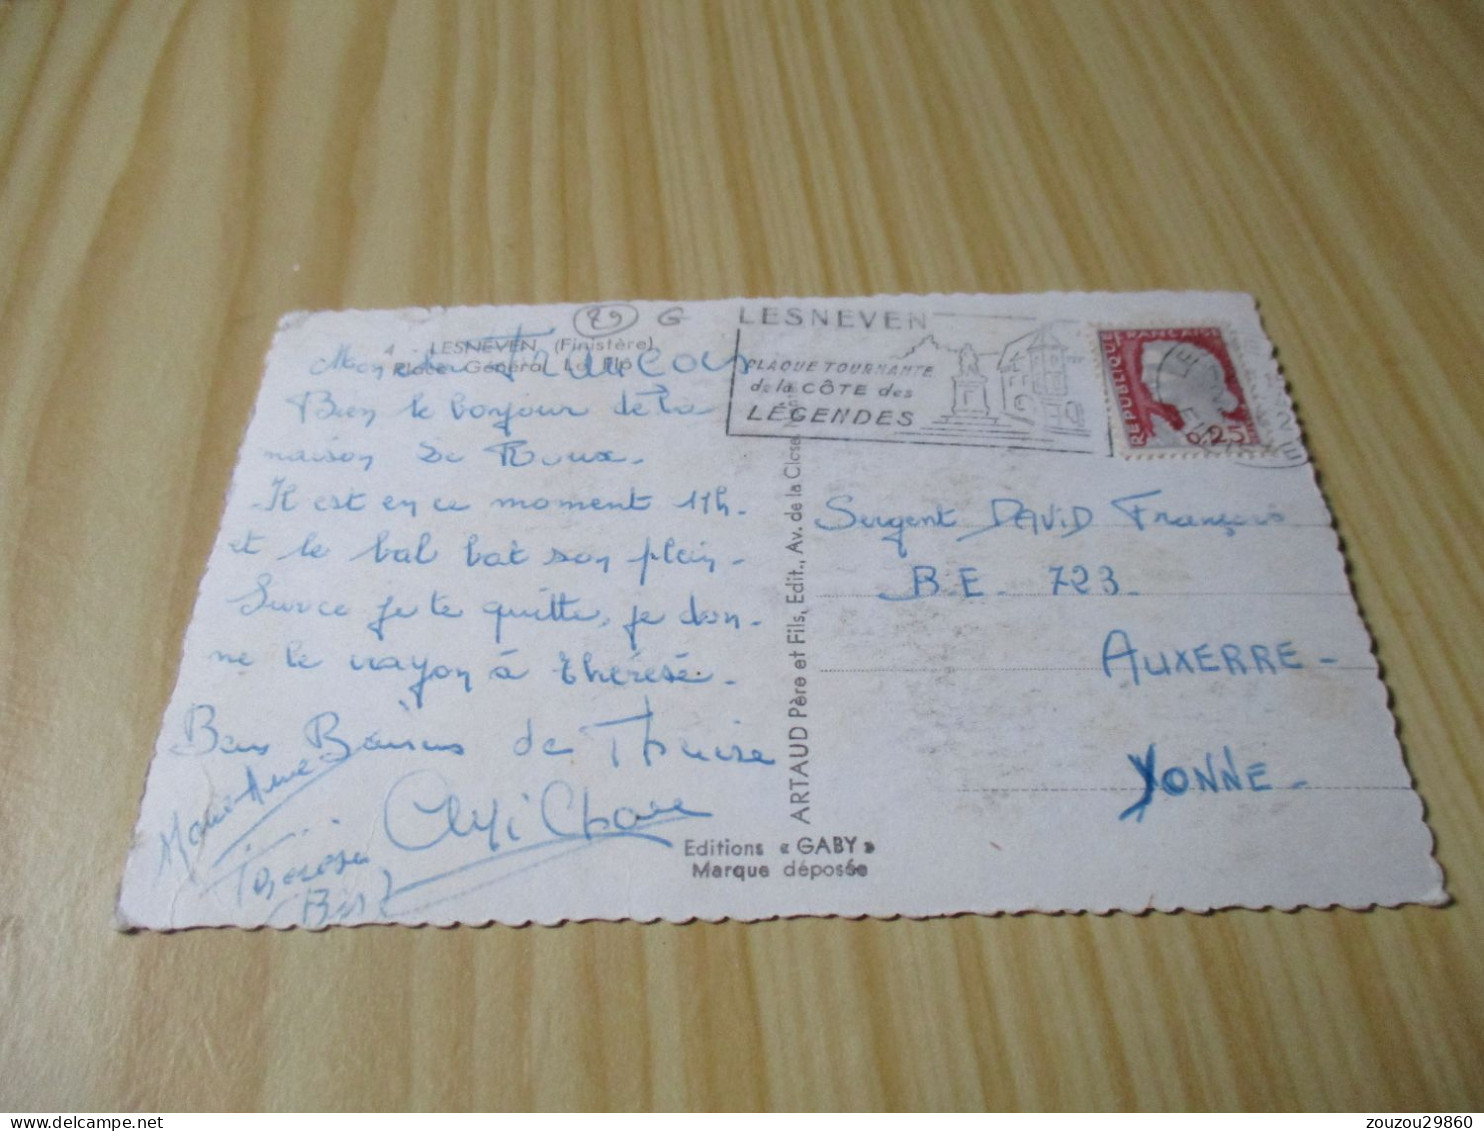 29 G
4 LESNEVEN (Finistère)
Place Général Le Flô
Mon François
Bien le bonjour de la
maison De Roux.
Il est en ce moment 11h.
et le bal bat son plein-
Sur ce je te quitte, je don-
ne le crayon à thérèse.
Bons Baisers de Thérèse
Marie-Anne
LESNEVEN
PLAQUE TOURNANTE
de la CÔTE des
LÉGENDES
REPUBLIQUE FRANÇAISE
0,25
Sergent DAVID François
B.E. 723.
AUXERRE-
YONNE-
ARTAUD Père et Fils, Edit., Av. de la Close
Editions « GABY »
Marque déposée
zouzou29860